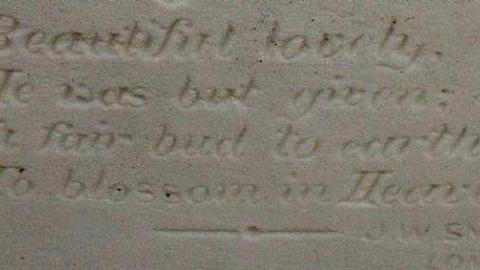 Beautiful lovely.
He was but given;
A fair bud to earth
To blossom in Heav
J.W. S